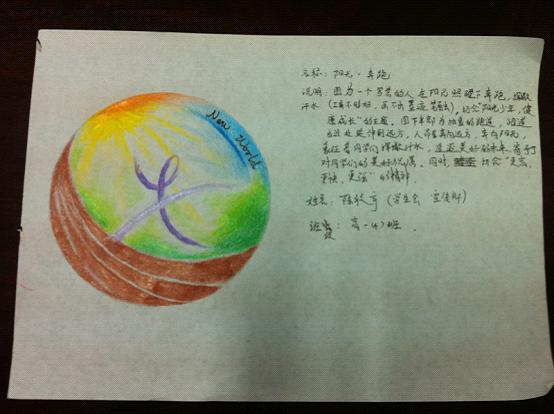 New World
名称：阳光·奔跑
说明：图为一个写意的人在阳光照耀下奔跑，挥洒
汗水（工具不够好，画不出墨迹），切合“阳光少年，健
康成长”的主题，图下半部为抽象的跑道，跑道
由近处延伸到远方，人带着奔向远方，奔向阳光，
象征着同学们挥洒汗水，迎接美好的未来，寄予了
对同学们的美好祝愿。同时，切合“更高、
更快、更强”的精神。
姓名：陈（学生会 宣传部）
班级：高一(4)班．